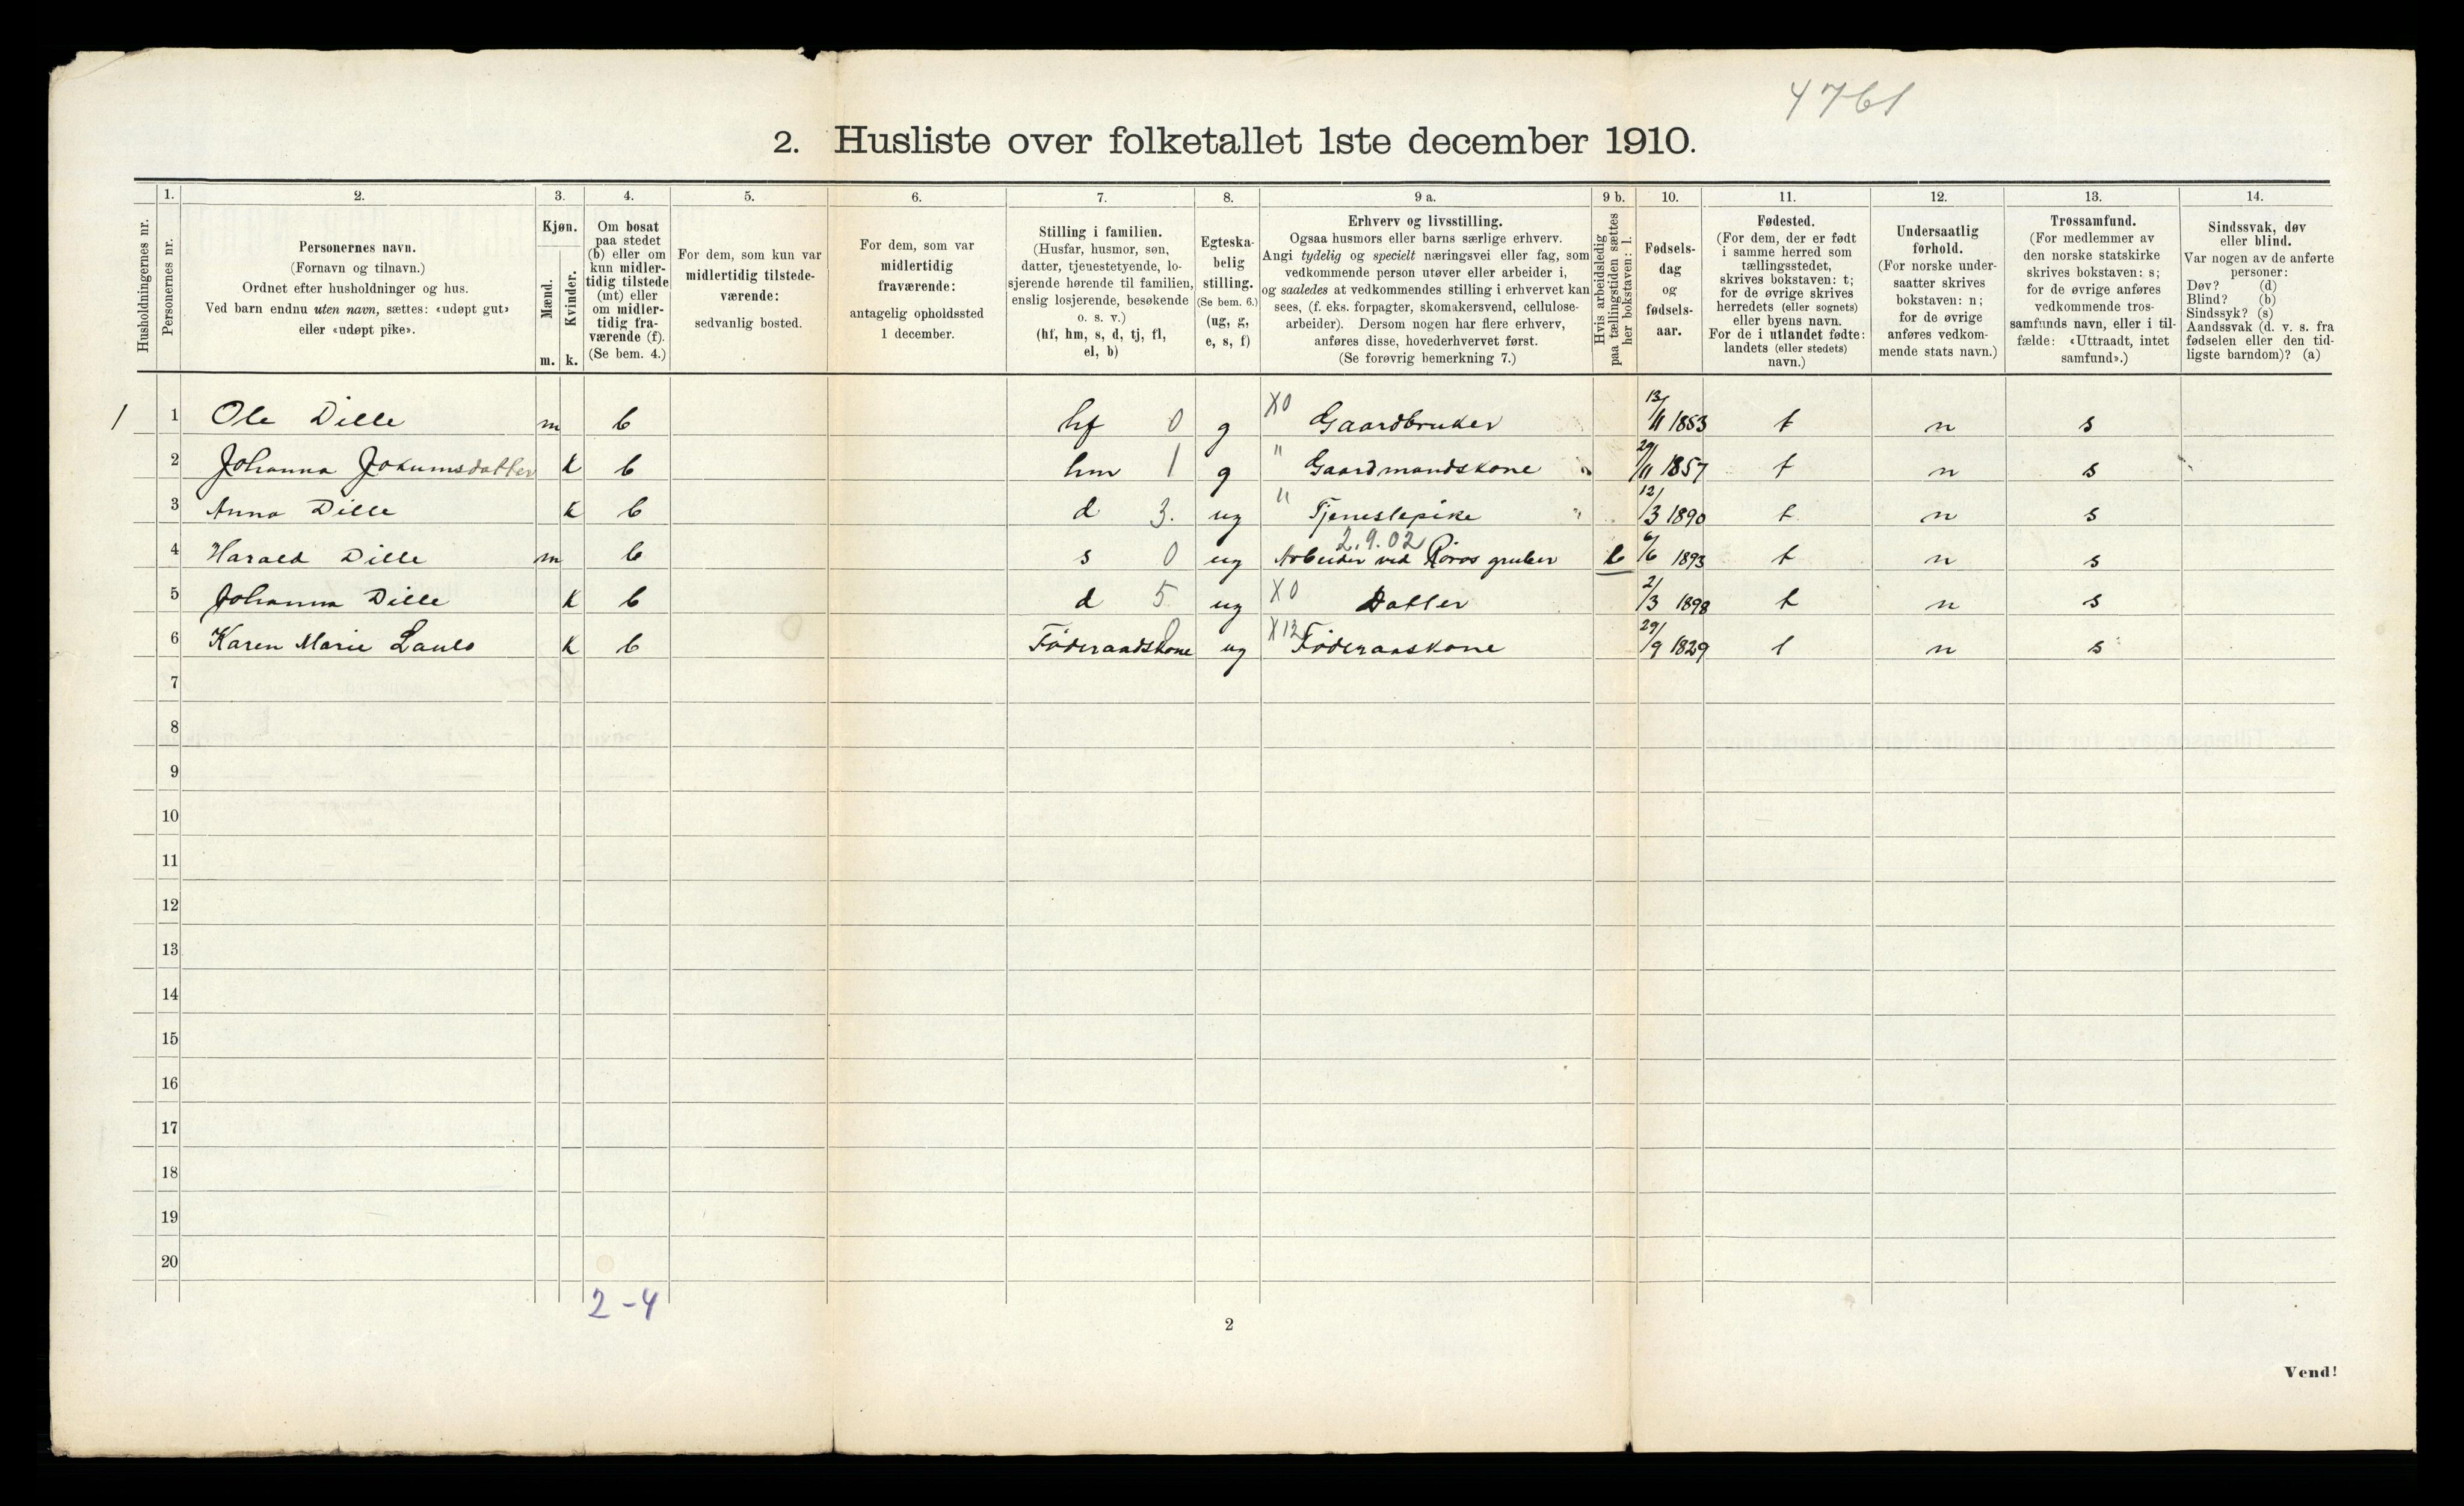 4761
2. Husliste over folketallet 1ste december 1910.
Husholdningernes nr.
1. Personernes nr.
2. Personernes navn. (Fornavn og tilnavn.) Ordnet efter husholdninger og hus. Ved barn endnu uten navn, sættes: «udøpt gut» eller «udøpt pike».
3. Kjøn. Mænd. m. Kvinder. k.
4. Om bosat paa stedet (b) eller om kun midlertidig tilstede (mt) eller om midlertidig fraværende (f). (Se bem. 4.)
5. For dem, som kun var midlertidig tilstedeværende: sedvanlig bosted.
6. For dem, som var midlertidig fraværende: antagelig opholdssted 1 december.
7. Stilling i familien. (Husfar, husmor, søn, datter, tjenestetyende, losjerende hørende til familien, enslig losjerende, besøkende o. s. v.) (hf, hm, s, d, tj, fl, el, b)
8. Egteskabelig stilling. (Se bem. 6.) (ug, g, e, s, f)
9 a. Erhverv og livsstilling. Ogsaa husmors eller barns særlige erhverv. Angi tydelig og specielt næringsvei eller fag, som vedkommende person utøver eller arbeider i, og saaledes at vedkommendes stilling i erhvervet kan sees, (f. eks. forpagter, skomakersvend, cellulosearbeider). Dersom nogen har flere erhverv, anføres disse, hovederhvervet først. (Se forøvrig bemerkning 7.)
9 b. Hvis arbeidsledig paa tællingstiden sættes her bokstaven: l.
10. Fødselsdag og fødselsaar.
11. Fødested. (For dem, der er født i samme herred som tællingsstedet, skrives bokstaven: t; for de øvrige skrives herredets (eller sognets) eller byens navn. For de i utlandet fødte: landets (eller stedets) navn.)
12. Undersaatlig forhold. (For norske undersaatter skrives bokstaven: n; for de øvrige anføres vedkommende stats navn.)
13. Trossamfund. (For medlemmer av den norske statskirke skrives bokstaven: s; for de øvrige anføres vedkommende trossamfunds navn, eller i tilfælde: «Uttraadt, intet samfund».)
14. Sindssvak, døv eller blind. Var nogen av de anførte personer: Døv? (d) Blind? (b) Sindssyk? (s) Aandssvak (d. v. s. fra fødselen eller den tidligste barndom)? (a)
1 1 Ole Dille m b hf 0 g X0 Gaardbruker 13/11 1853 t n s
2 Johanna Jokumsdatter k b hm 1 g " Gaardmandskone 29/11 1857 t n s
3 Anna Dille k b d 3. ug " Tjenestepike 12/3 1890 t n s
4 Harald Dille m b s 0 ug 2.9.02 Arbeider ved Røros gruber l 6/6 1893 t n s
5 Johanna Dille k b d 5 ug X0 Datter 2/3 1898 t n s
6 Karen Marie k b Føderaadskone ug X12 Føderaaskone 29/9 1829 t n s
7
8
9
10
11
12
13
14
15
16
17
18
19
20
2-4
2
Vend!